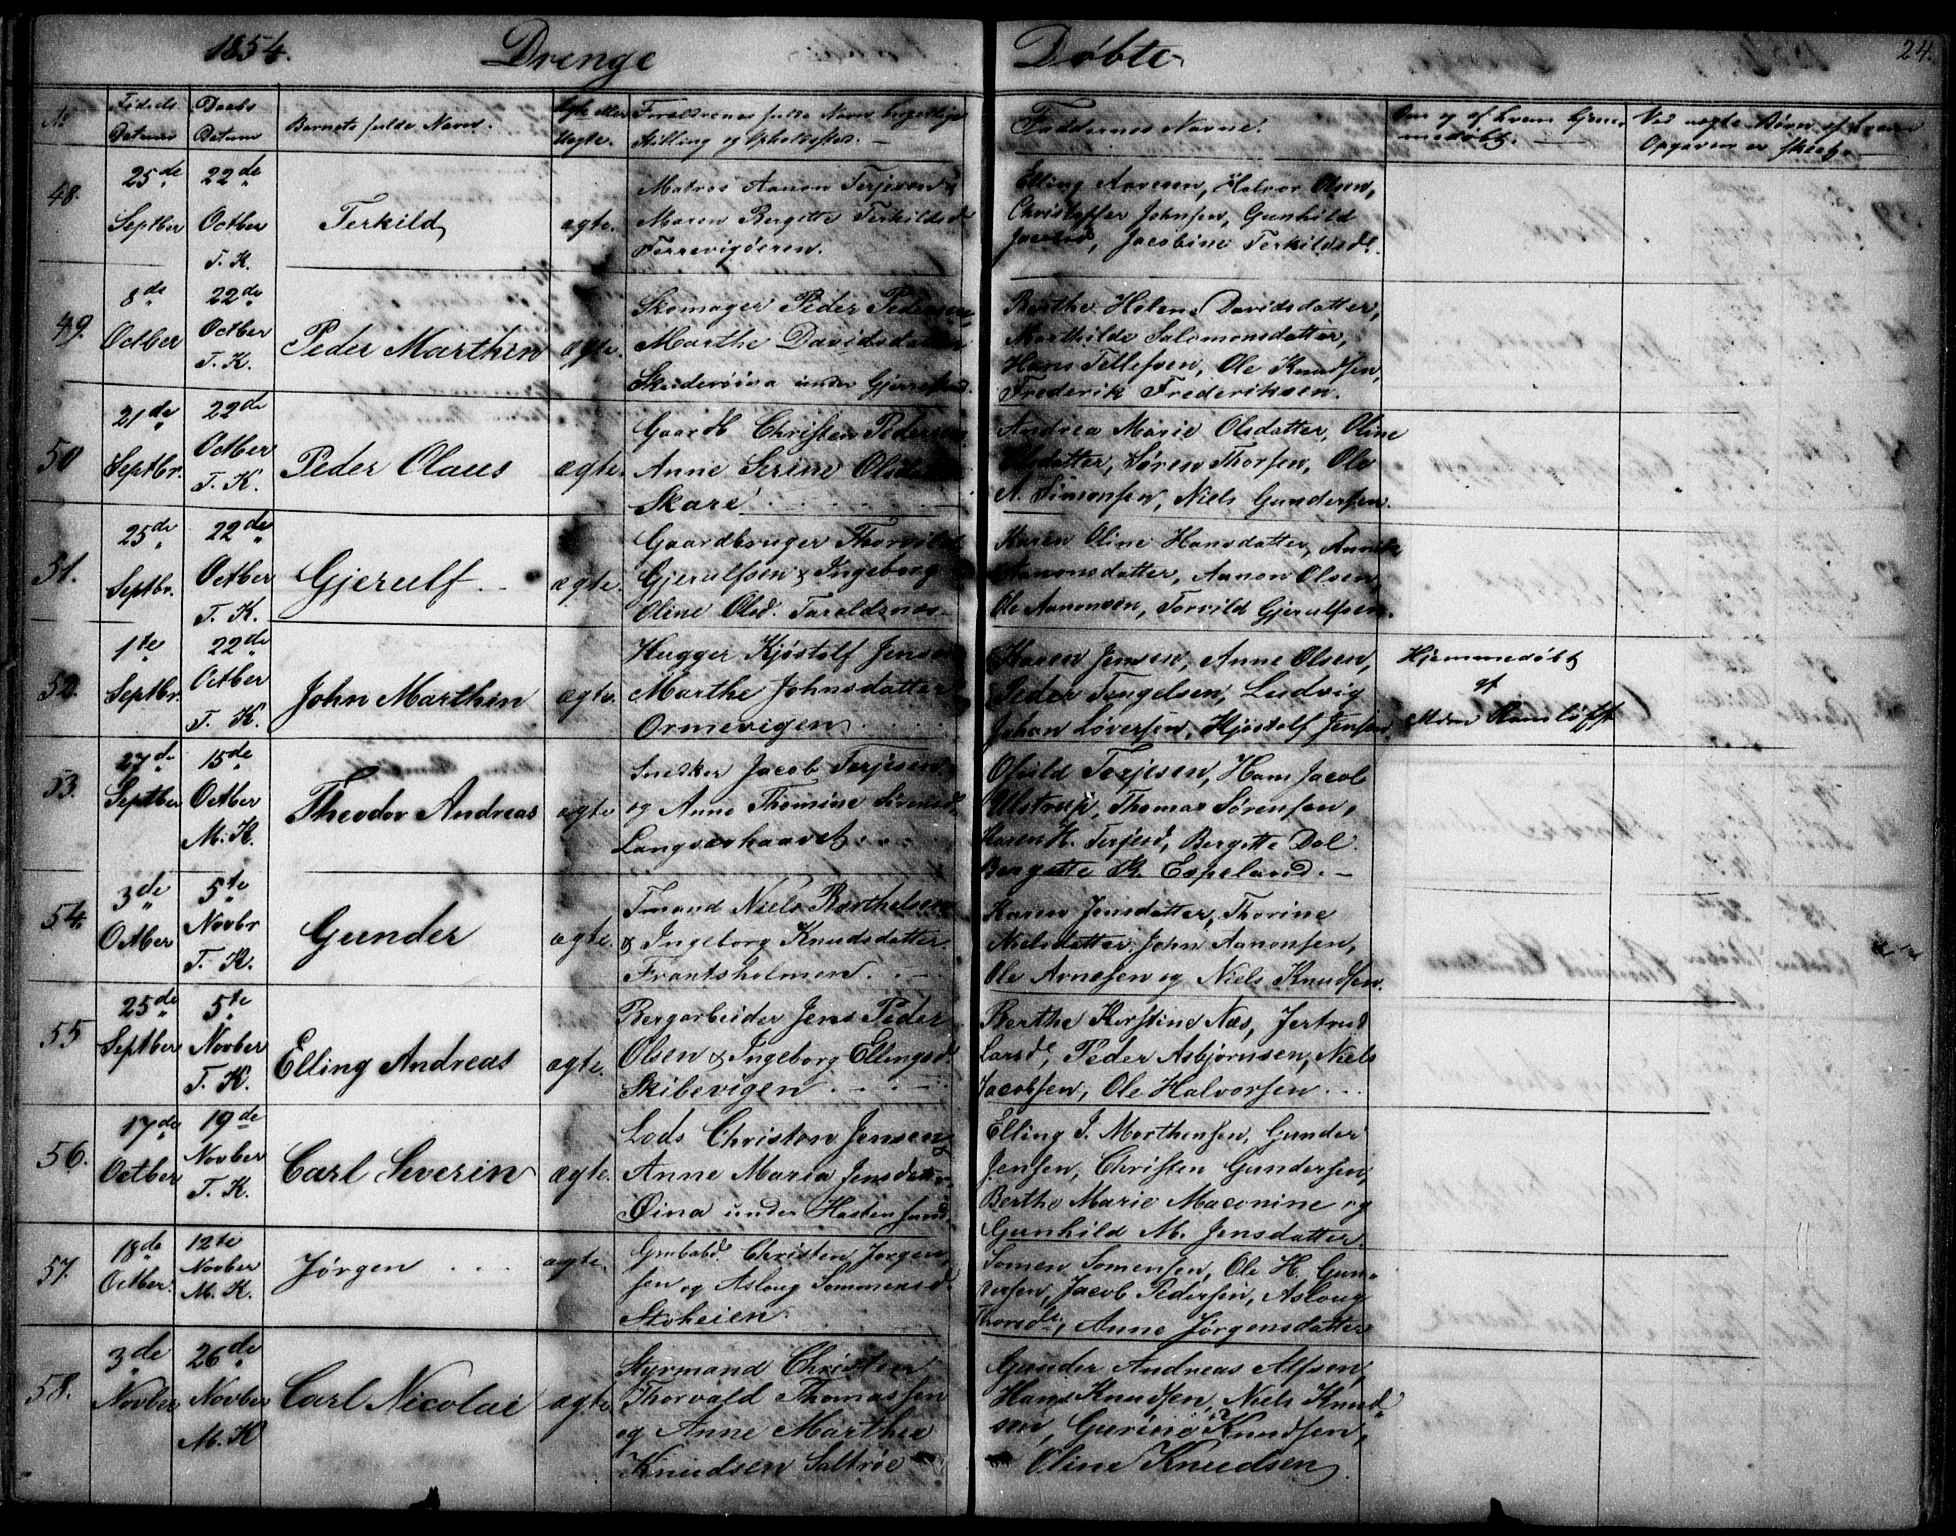 1854. Drenge Døbte 24.
No
Fødsels Datum
Daabs Datum
Barnets fulde Navn.
Ægte eller Uægte.
Forældrenes fulde Navn borgerlige
Stilling og Opholdssted. —
Faddernes Navne.
Om og af hvem hjemmedøbt. —
Ved uægte Børn af hvem
Opgaven er skeet. —
48.
25de Septber
22de October T. K.
Terkild
ægte.
Matros Aanon Terjesen &
Maren Bergitte Terkildsd
Torrevigderen.
Elling Aanesen, Halvor Olsen,
Christoffer Johnsen, Gunhild
Jacobsd, Jacobine Terkildsd.
49.
8de Octber
22de Octber T. K.
Peder Marthin
ægte.
Skomager Peder Pedersen,
Marthe Davidsdatter
under
Berthe Helene Davidsdatter,
Marthilde Salomonsdatter,
Hans Tellefsen, Ole Knudsen,
Frederik Frederiksen.
50
21de Septbr.
22de Octber T. K.
Peder Olaus
ægte.
Gaardb Christen Pedersen
Anne Serine Olsdatter
Skare
Andrea Marie Olsdatter, Oline
Olsdatter, Søren Thorsen, Ole
A. Simonsen, Niels Gundersen.
51.
25de Septbr.
22de Octber T. K.
Gjerulf
ægte.
Gaardbruger Thorvild
Gjerulfsen & Ingeborg
Oline Olsd. Taraldsnes
Karen Oline Hansdatter, Annike
Aanonsdatter, Aanon Olsen,
Ole Aanonsen, Torvild Gjerulfsen.
52.
1te Septbr.
22de Octber T. K.
John Marthin
ægte.
Hugger Kjøstolf Jensen
Marthe Johnsdatter
Ormevigen
Karen Jensen, Anne Olsen,
Peder Tengelsen, Ludvig
Johan Løversen, Kjøstolf Jensen.
Hjemmedøbt
af
53.
27de Septber
15de Octber M. K.
Theodor Andreas
ægte
Snedker Jacob Terjesen
og Anne Thomine Sørensd.
Langsævhaavet
Osuld Terjesen, Hans Jacob
Ulstrup, Thomas Sørensen,
Karen H. Terjesd, Bergitte Dal.
Bergitte K. Espeland. —
54.
3de Octber
5te Novbr T. K.
Gunder
ægte.
Tømand Niels Barthelsen
& Ingeborg Knudsdatter
Frantsholmen.
Karen Jensdatter, Thorine
Nielsdatter, John Aanonsen,
Ole Arnesen og Niels Knudsen.
55
25de Septber
5te Novber T. K.
Elling Andreas
ægte.
Bergarbeider Jens Peder
Olsen & Ingeborg Ellingsd.
Skibevigen
Berthe Kirstine Næs, Jertrud
Larsd, Peder Asbjørnsen, Niels
Jacobsen, Ole Halvorsen
56.
17de Octber
19de Novber T. K.
Carl Severin
ægte.
Lods Christen Jensen
Anne Maria Jensdatter.
Øina under Hastensund.
Elling J. Morthensen, Gunder
Jensen, Christen Gundersen,
Berthe Marie Maconine og
Gunhild M. Jensdatter.
57.
18de Octber.
12te Novber M. K.
Jørgen
ægte.
Christen Jørgen
sen og Aslaug Sommensd.
Stokeien.
Somen Somensen, Ole H. Gun
dersen, Jacob Pedersen, Aslaug
Thorsd., Anne Jørgensdatter
58.
3de Novber
26de Novber M. K
Carl Nicolai
ægte
Styrmand Christen
Thorvald Thomassen
og Anne Marthea
Knudsen Saltrøe
Gunder Andreas Alfsen,
Hans Knudsen, Niels Knud
sen, Gurine Knudsen,
Oline Knudsen